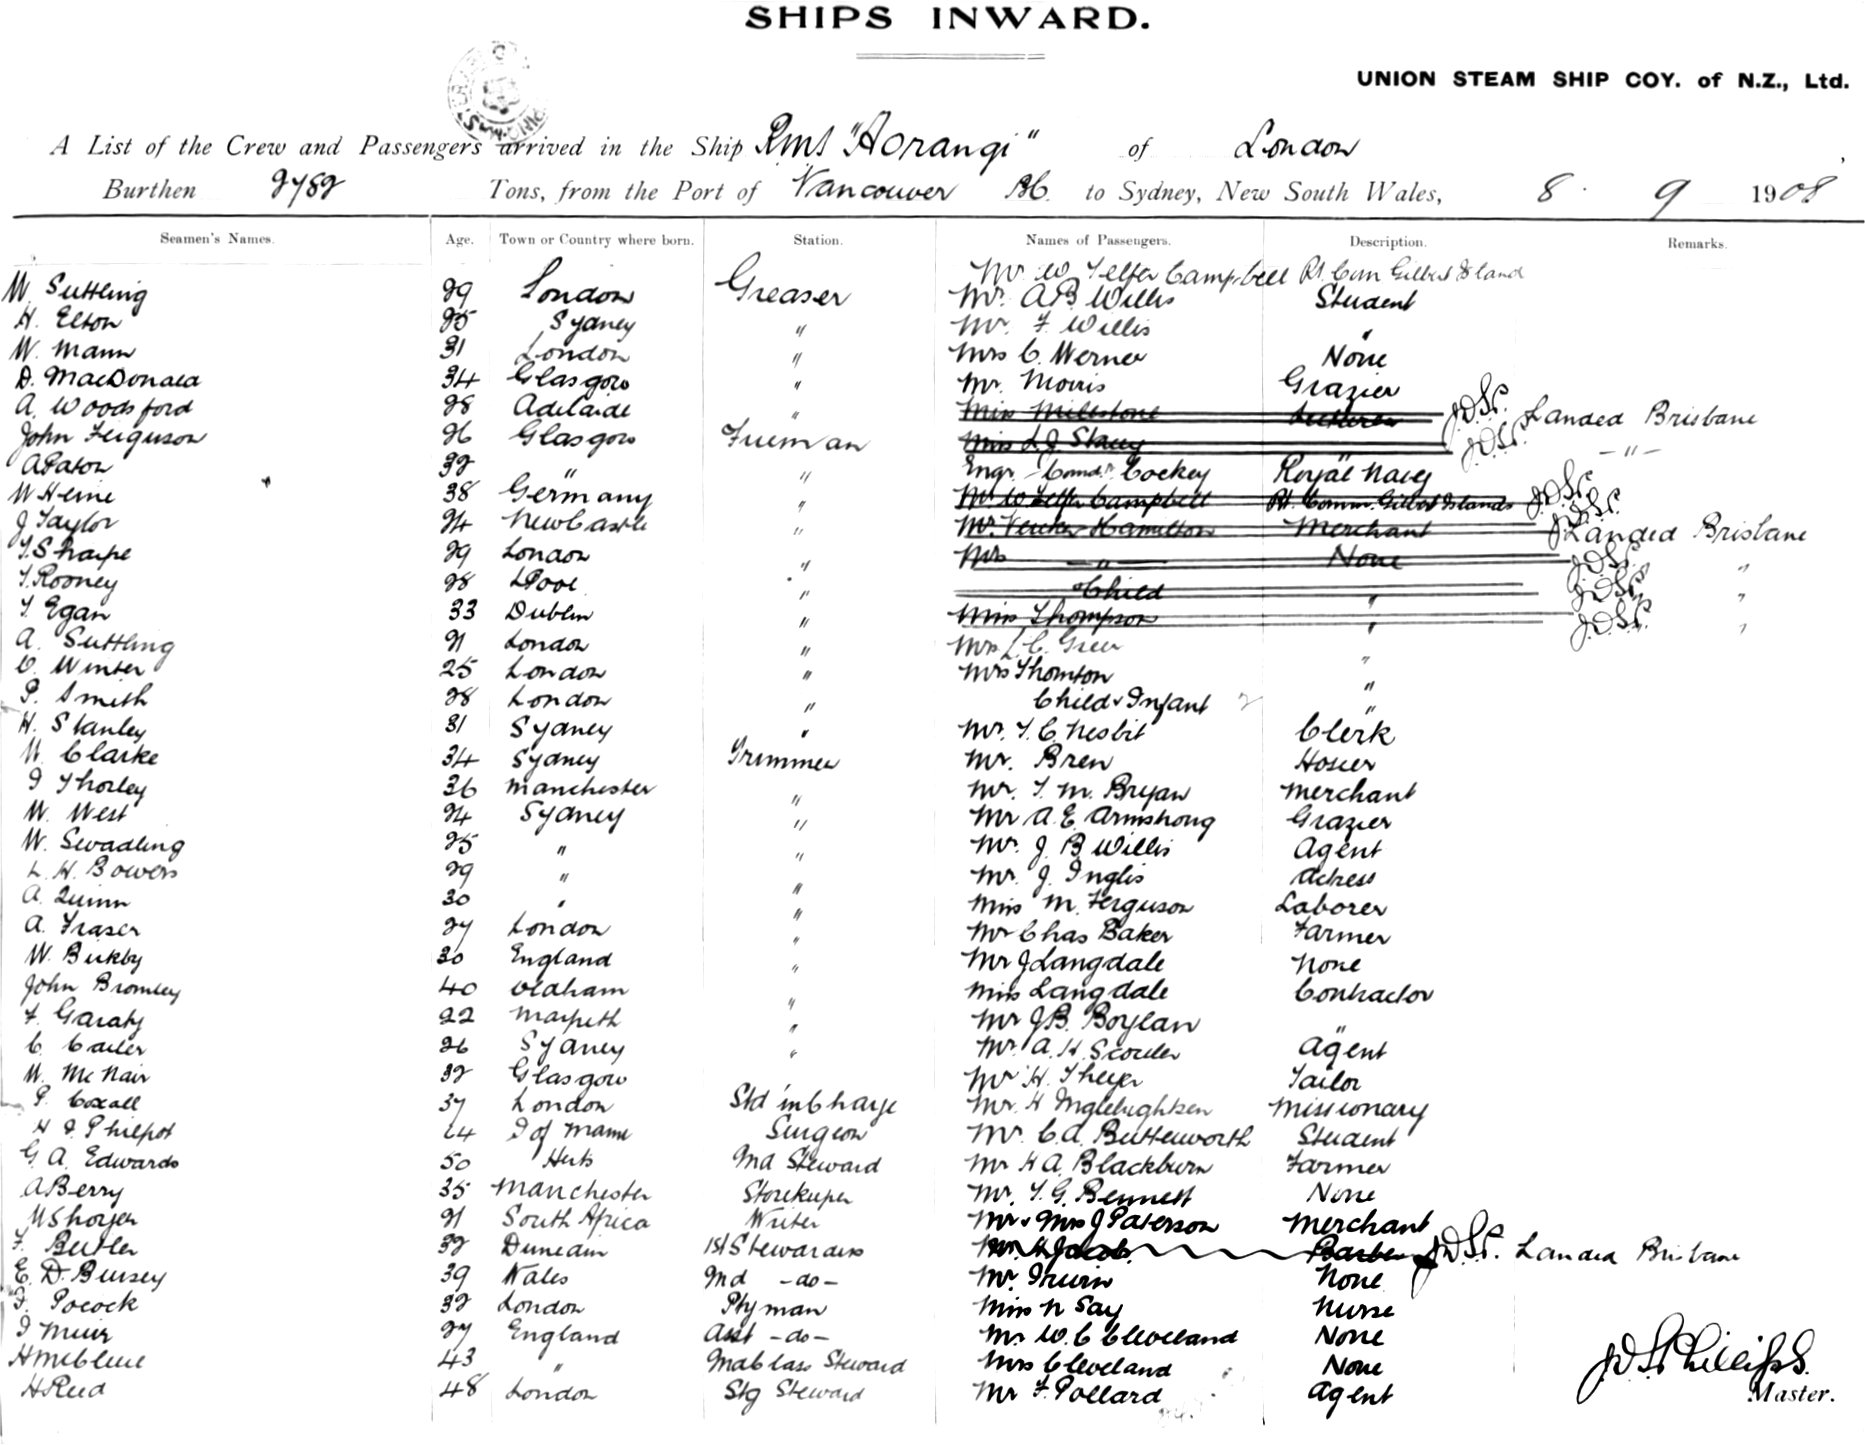 SHIPS INWARD.
UNION STEAM SHIP COY. of N.Z., Ltd.
A List of the Crew and Passengers arrived in the Ship Rms "Aorangi" of London
Burthen 2782 Tons, from the Port of Vancouver BC. to Sydney, New South Wales, 8. 9 1908
Seamen's Names. Age. Town or Country where born. Station. Names of Passengers. Description. Remarks.
Mr W Telfer Campbell Rt Com Gilbert Island
W. Suttling 29 London Greaser Mr. A B Willis Student
H. Elton 25 Sydney " Mr. F. Willis "
W. Mann 31 London " Mrs C. Werner None
D. MacDonald 34 Glasgow " Mr. Morris Grazier
A. Woodsford 28 Adelaide " Miss Millstone J.D.S.P. Landed Brisbane
John Ferguson 26 Glasgow Fireman Miss L. J. Stacey J.D.S.P. -"-
A Paton 32 " " Engr. Comdr. Cockey Royal Navy
W Heine 38 Germany " Mr W Telfer Campbell Rt. Comm. Gilbert Islands J.D.S.P.
J Taylor 24 NewCastle " Mr. Hamilton Merchant J.D.S.P. Landed Brisbane
T. Sharpe 29 London " Mrs -"- None J.D.S.P. "
T. Rooney 28 LPool " Child " J.D.S.P. "
T. Egan 33 Dublin " Miss Thompson " J.D.S.P. "
A. Suttling 21 London " Mrs L. C. Greer "
C. Winter 25 London " Mrs Thornton "
P. Smith 28 London " Child & Infant 2 "
H. Stanley 31 Sydney " Mr. T. C. Nesbit Clerk
W. Clarke 34 Sydney Trimmer Mr. Bren Hosier
J Thorley 36 Manchester " Mr. T. M. Bryan Merchant
W. West 24 Sydney " Mr A. E. Armstrong Grazier
W. Swadling 25 " " Mr. J. B Willis Agent
L. H. Bowers 29 " " Mr. J. Inglis Actress
A. Quinn 30 " " Miss M. Ferguson Laborer
A. Fraser 27 London " Mr Chas Baker Farmer
W. Birkby 30 England " Mr J Langdale None
John Bromley 40 Oldham " Miss Langdale Contractor
F. Garaty 22 Morpeth " Mr J. B. Boylan "
C. Cailer 26 Sydney " Mr. A. H. Scouler Agent
W. McNair 32 Glasgow Mr H. Theyer Tailor
P. Coxall 37 London Std in Charge Mr. H Missionary
H J Philpot 24 I of Mann Surgeon Mr. C. A. Butterworth Student
G. A. Edwards 50 Herts 2nd Steward Mr H A. Blackburn Farmer
A Berry 35 Manchester Storekeeper Mr. T. G. Bennett None
21 South Africa Writer Mr & Mrs J Paterson Merchant
F. Butler 32 Dunedin 1st Stewardess Mr. H Jacob Barber J.D.S.P. Landed Brisbane
E. D. Bursey 39 Wales 2nd -do- Mr. Irwin None
F. Pocock 32 London Ptyman Miss N Say Nurse
J Muir 27 England Asst -do- Mr. W. C Cleveland None
H McClure 43 " 2nd Class Steward Mrs Cleveland None
H Reid 48 London Stg Steward Mr F. Pollard Agent
J D S Phillips.
Master.